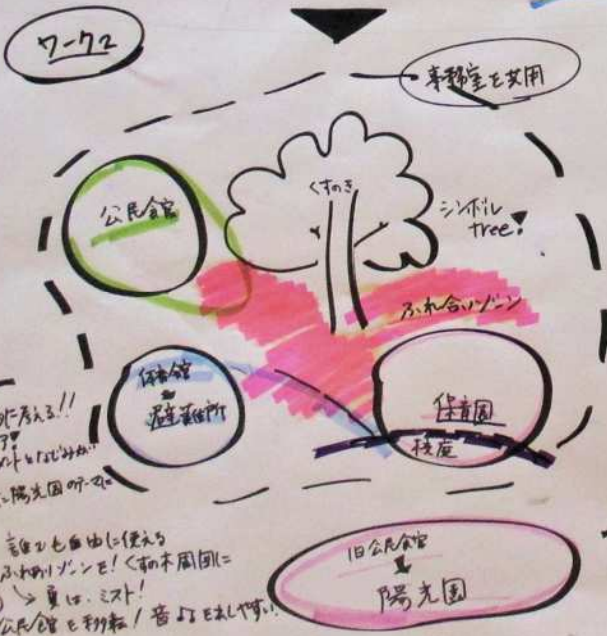 ワーク2
事務室を共用
くすのき
公民会館
シンボル
tree!
ふれ合いゾーン
体育館
避難所
保育園
園庭
に考える!!
に陽光園のテーマに
誰でも自由に使える
ふれあいゾーンを!くすの木周囲に
夏は、ミスト!
公民会館を移転!音よるをおしやすい!
旧公民会館
陽光園